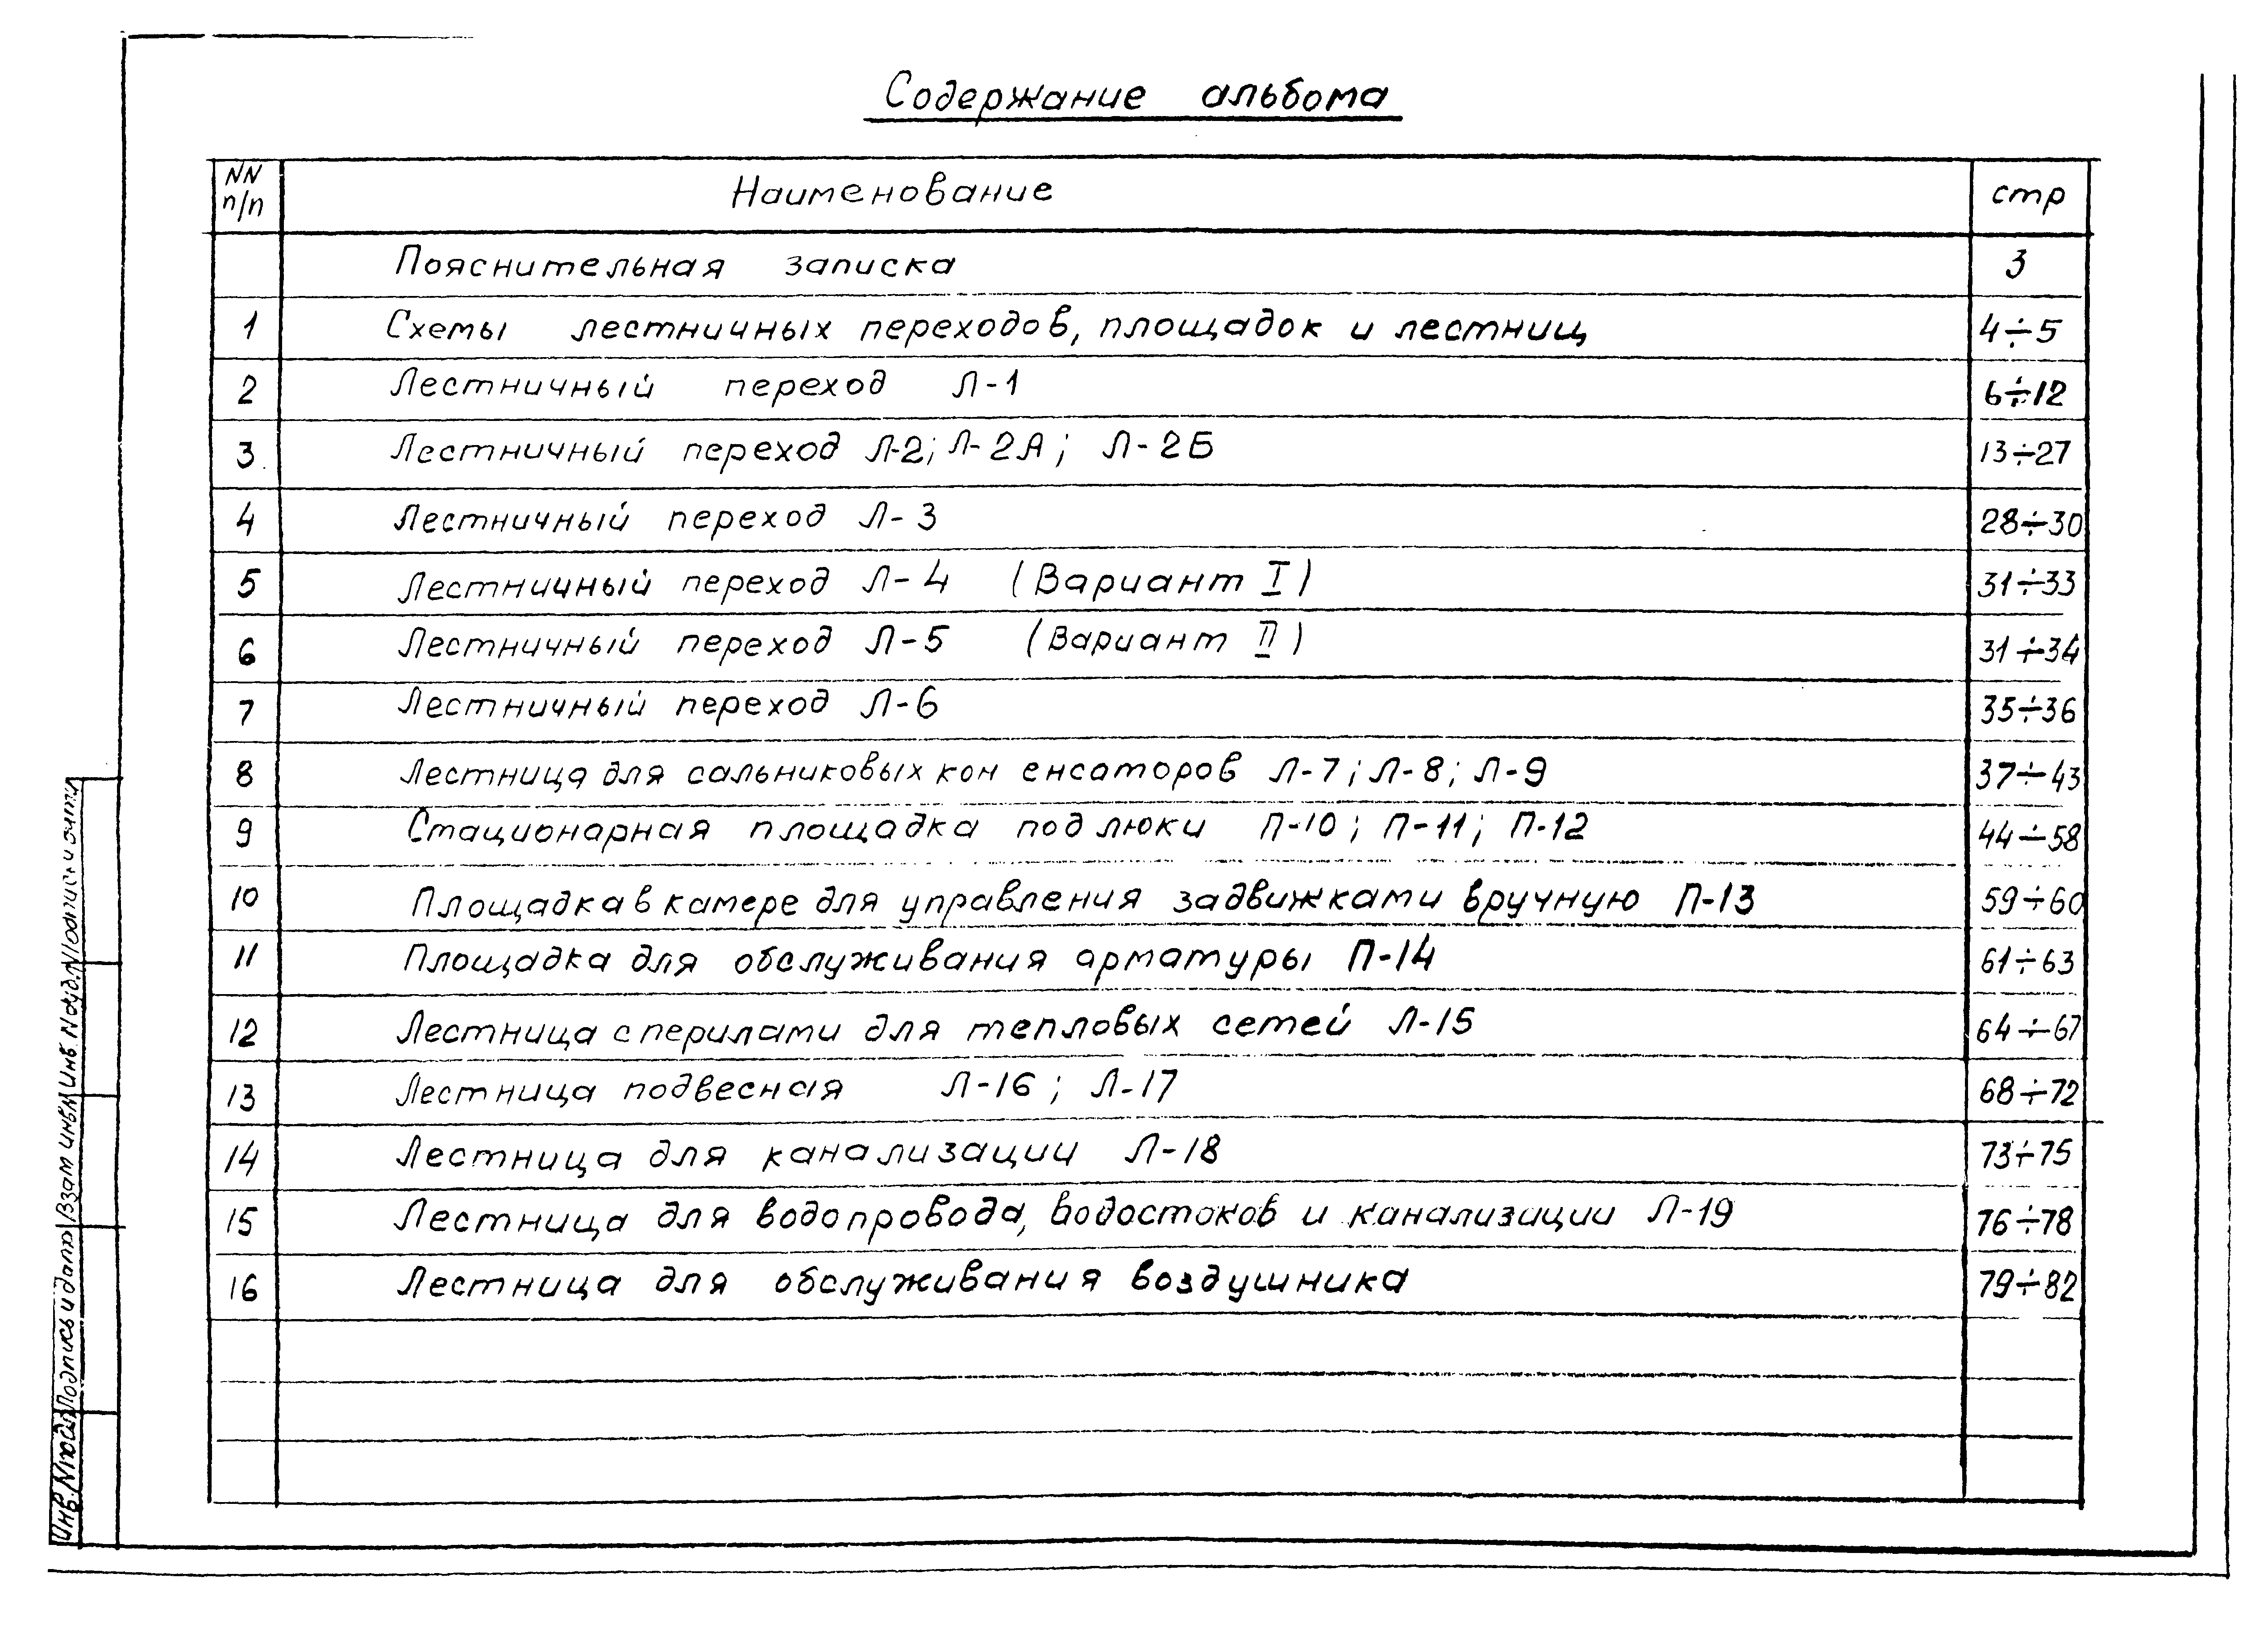 Содержание альбома
NN п/п Наименование стр
Пояснительная записка 3
1 Схемы лестничных переходов, площадок и лестниц 4÷5
2 Лестничный переход Л-1 6÷12
3 Лестничный переход Л-2; Л-2А; Л-2Б 13÷27
4 Лестничный переход Л-3 28÷30
5 Лестничный переход Л-4 (Вариант I) 31÷33
6 Лестничный переход Л-5 (Вариант II) 31÷34
7 Лестничный переход Л-6 35÷36
8 Лестница для сальниковых ком енсаторов Л-7; Л-8; Л-9 37÷43
9 Стационарная площадка под люки П-10; П-11; П-12 44÷58
10 Площадка в камере для управления задвижками вручную П-13 59÷60
11 Площадка для обслуживания арматуры П-14 61÷63
12 Лестница с перилами для тепловых сетей Л-15 64÷67
13 Лестница подвесная Л-16; Л-17 68÷72
14 Лестница для канализации Л-18 73÷75
15 Лестница для водопровода, водостоков и канализации Л-19 76÷78
16 Лестница для обслуживания воздушника 79÷82
Инв. Подпись и дата Взам инв N Инв. N дубл. Подпись и дата